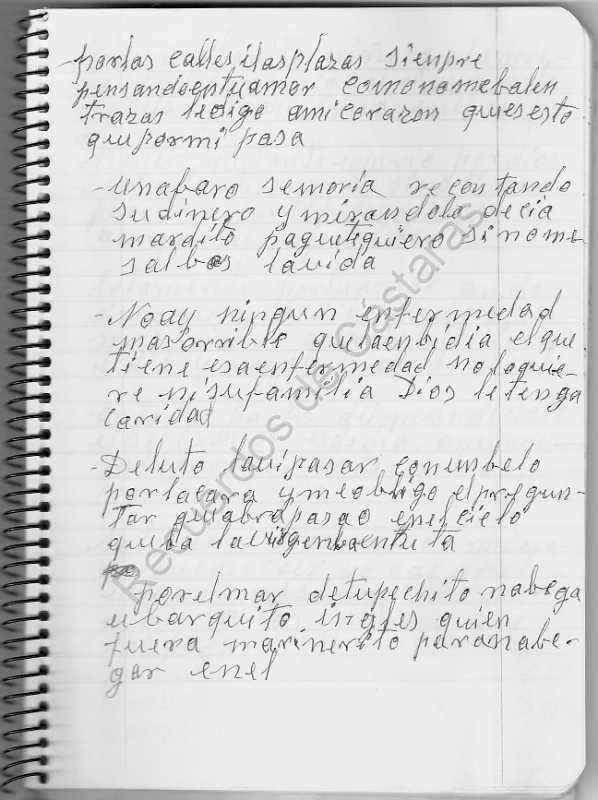 - porlas calles ilasplazas siempre
pensandoentuamor comonomebalen
trazas ledigo amicorazon quesesto
quepormi pasa
- unabaro semoria recontando
sudinero y mirandolo decia
mardito paquetequiero sinome
salbas lavida
- No ay ningun enfermedad
masorrible quelaenbidia elque
tiene esaenfermedad nolaquie-
re nisufamilia Diosletenga
caridad
- Deluto lavipasar conunbelo
porlacara ymeobligo elpregun-
tar queabrapasao enelcielo
queba lavirgenbaentuta
porelmar detupechito nabega
ubarquito ingles quien
fuera marinerito paranabe-
gar enel
Recuerdos de Cástaras